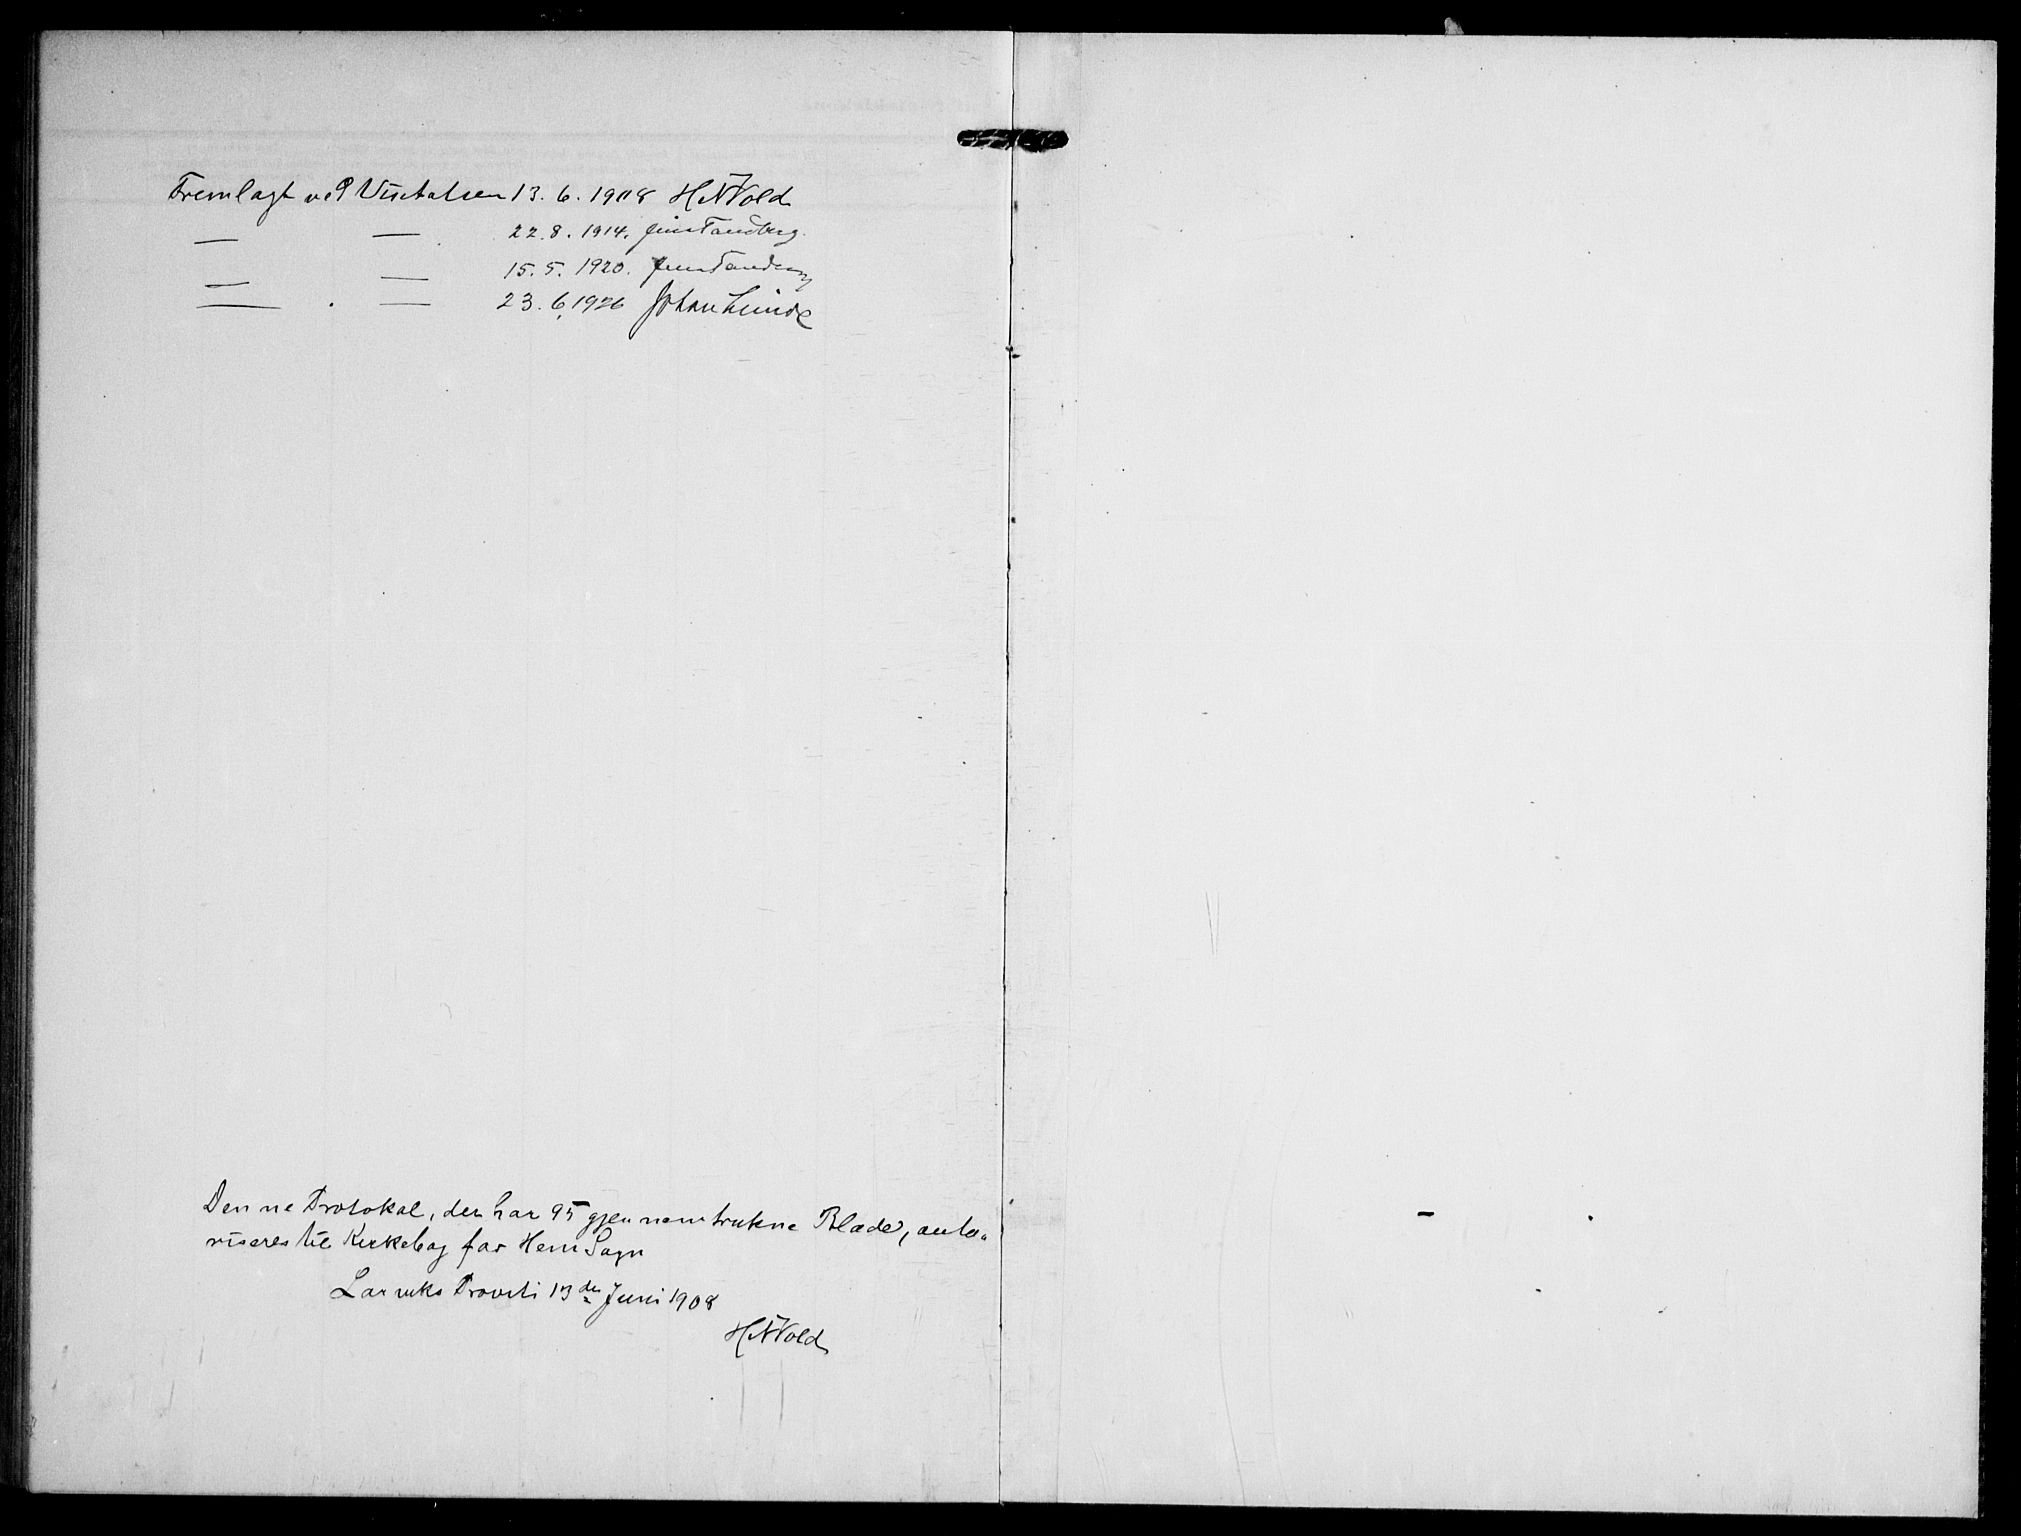 Fremlagt ved Visitatsen 13.6.1908 H N Wold
— — 22.8.1914. Jens Tandberg.
— — 15.5.1920. Jens Tandberg
— — 23.6.1926 Johan Lunde
Denne Protokol, der har 95 gjennemtrukne Blade, auto-
riseres til Kirkebog for Hem Sogn
Larviks Provsti 13de Juni 1908
H N Wold